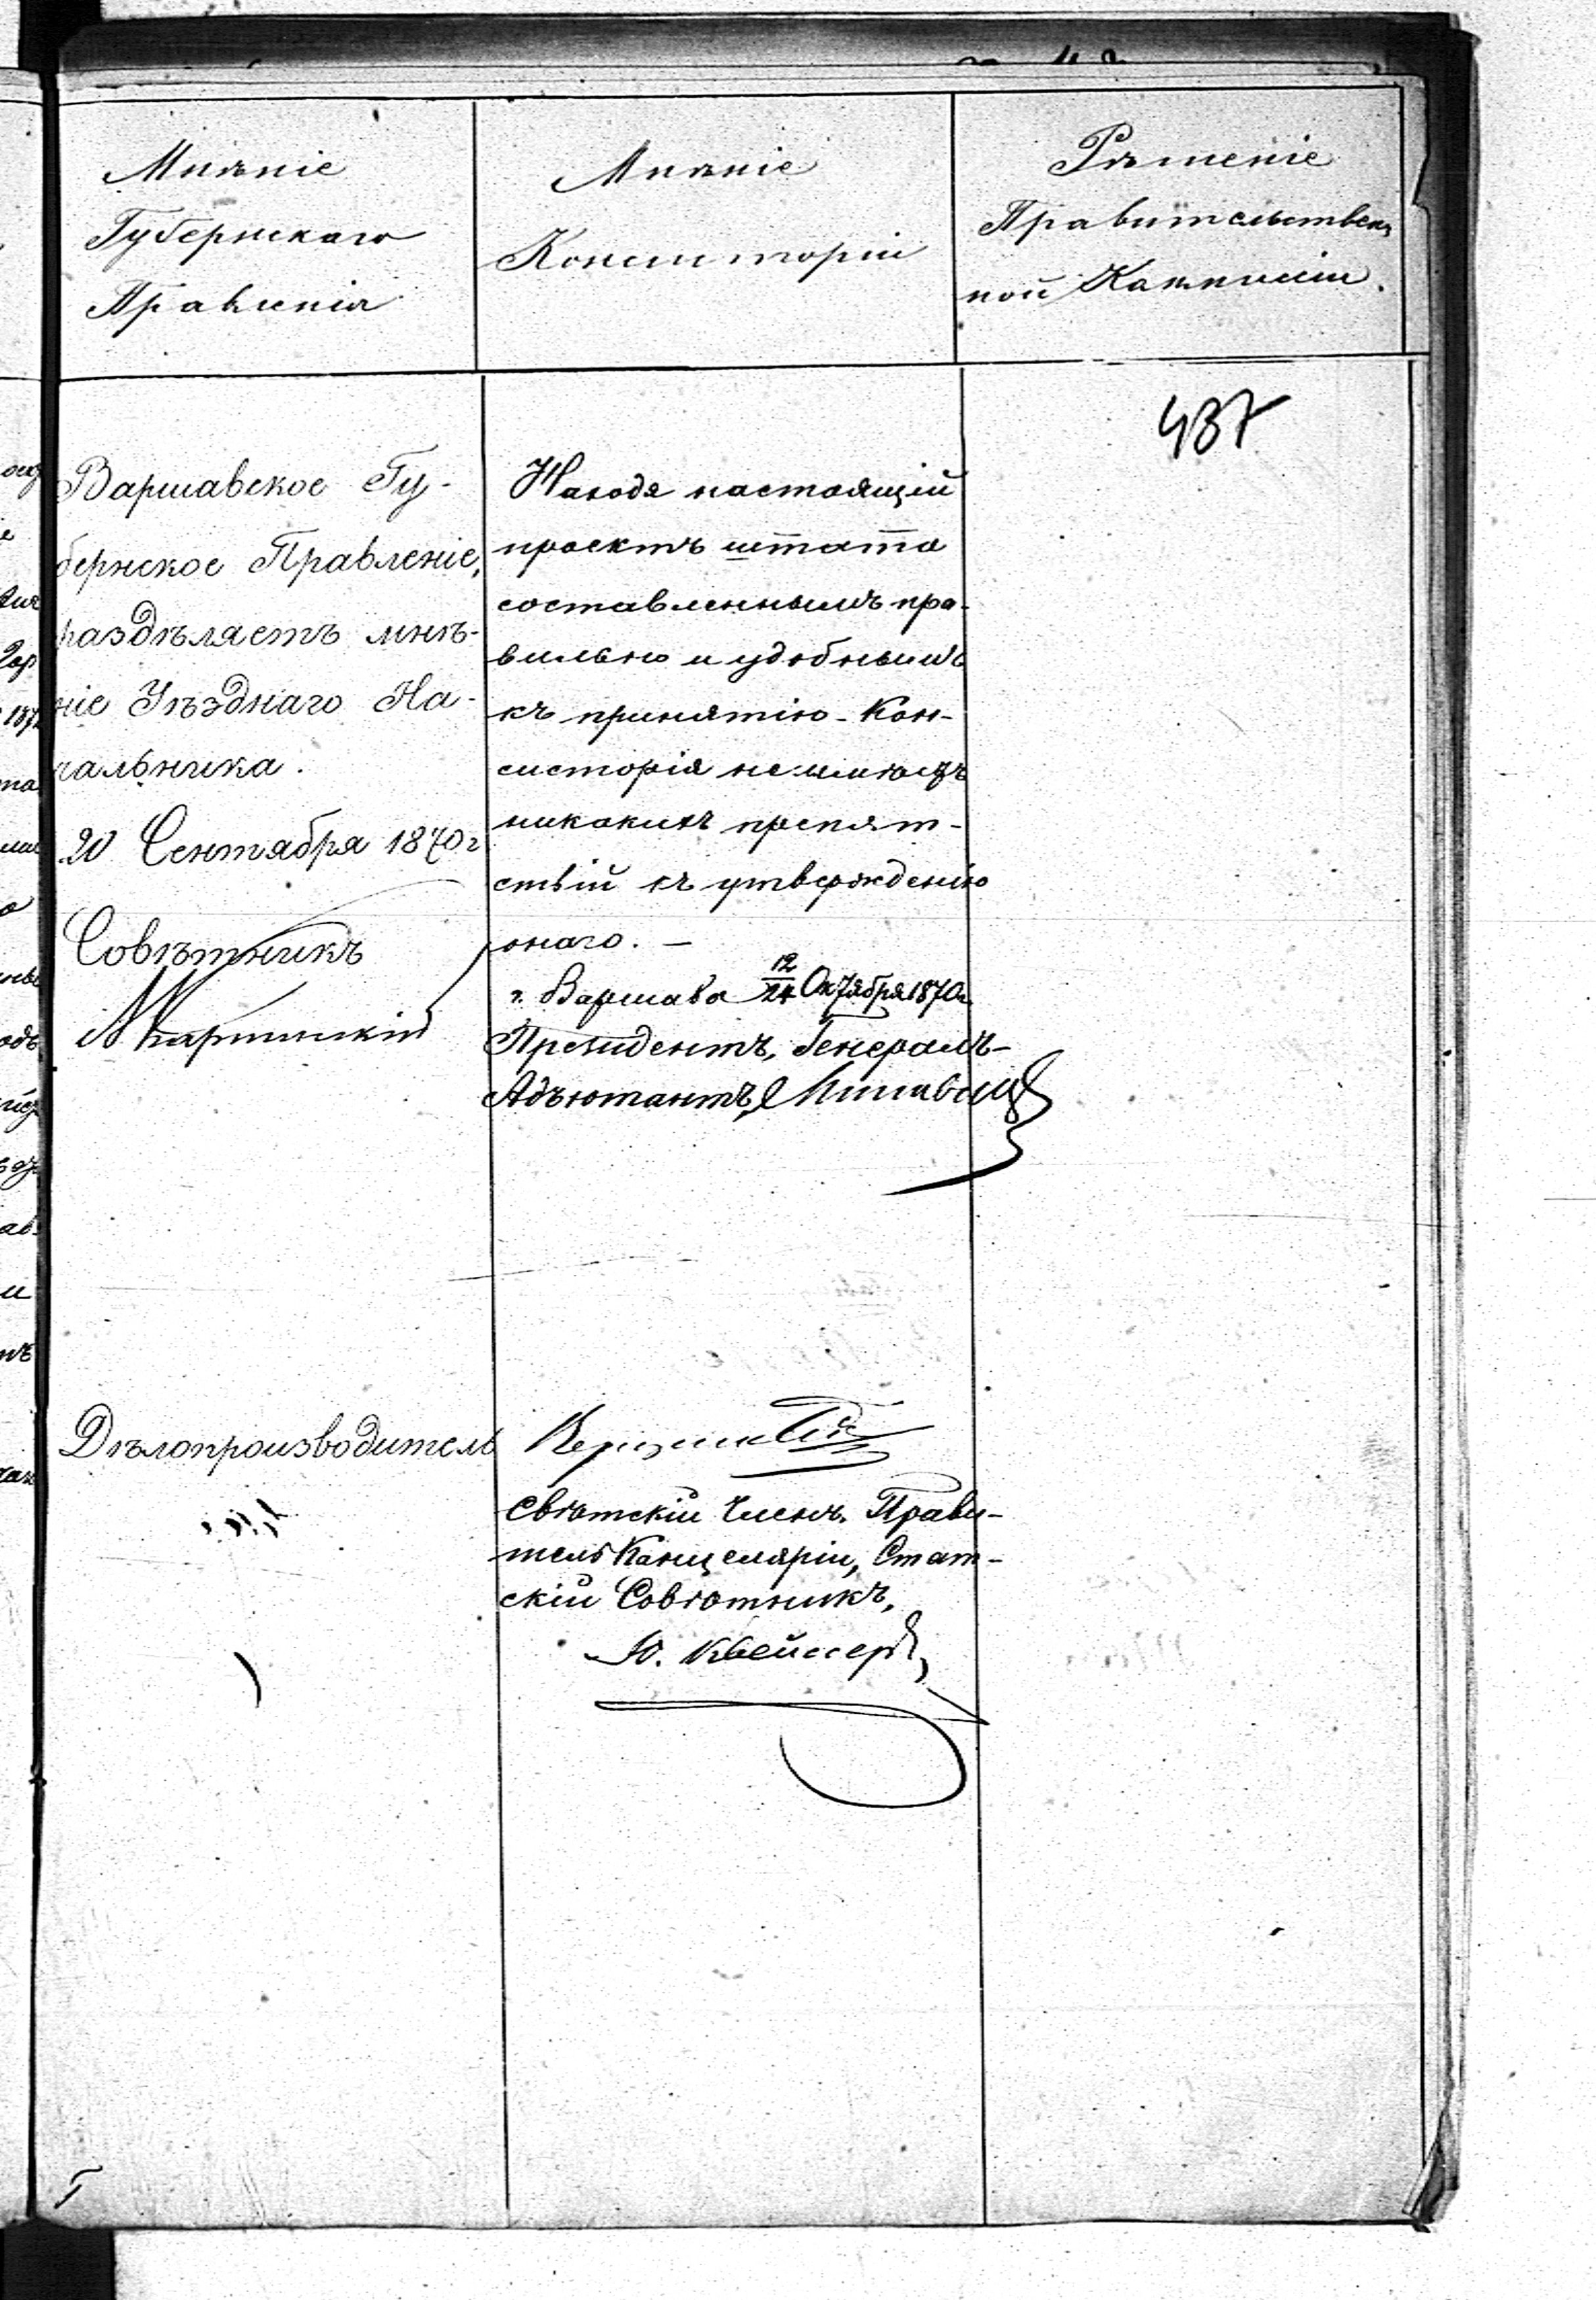 Мнѣніе
Губернскаго
Правленія
Мнѣніе
Консисторіи
Рѣшеніе
Правительствен
ной Коммисіи.
437
Варшавское Гу-
бернское Правленіе,
раздѣляетъ мнѣ-
ніе Уѣзднаго На-
чальника.
20 Сентября 1870 г
Совѣтникъ
Дѣлопроизводитель
Находя настоящій
проектъ штата
составленнымъ пра-
вильно и удобнымъ
къ принятію - Кон-
систорія не имѣетъ
никакихъ препят-
ствій къ утвержденію
онаго. —
г. Варшава 12/24 Октября 1870 г.
Президентъ, Генералъ-
Адъютантъ,
Свѣтскій Членъ. Прави-
тель Канцеляріи, Стат-
скій Совѣтникъ,
Ю.